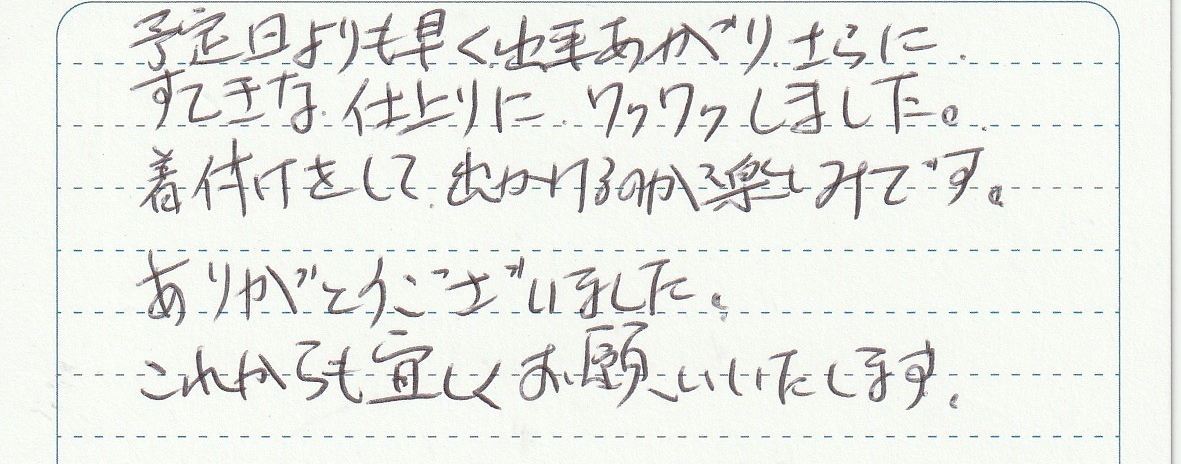 予定日よりも早く出来あがり、さらに
すてきな仕上りに、ワクワクしました。
着付けをして、出かけるのが楽しみです。
ありがとうございました。
これからも宜しくお願いいたします。